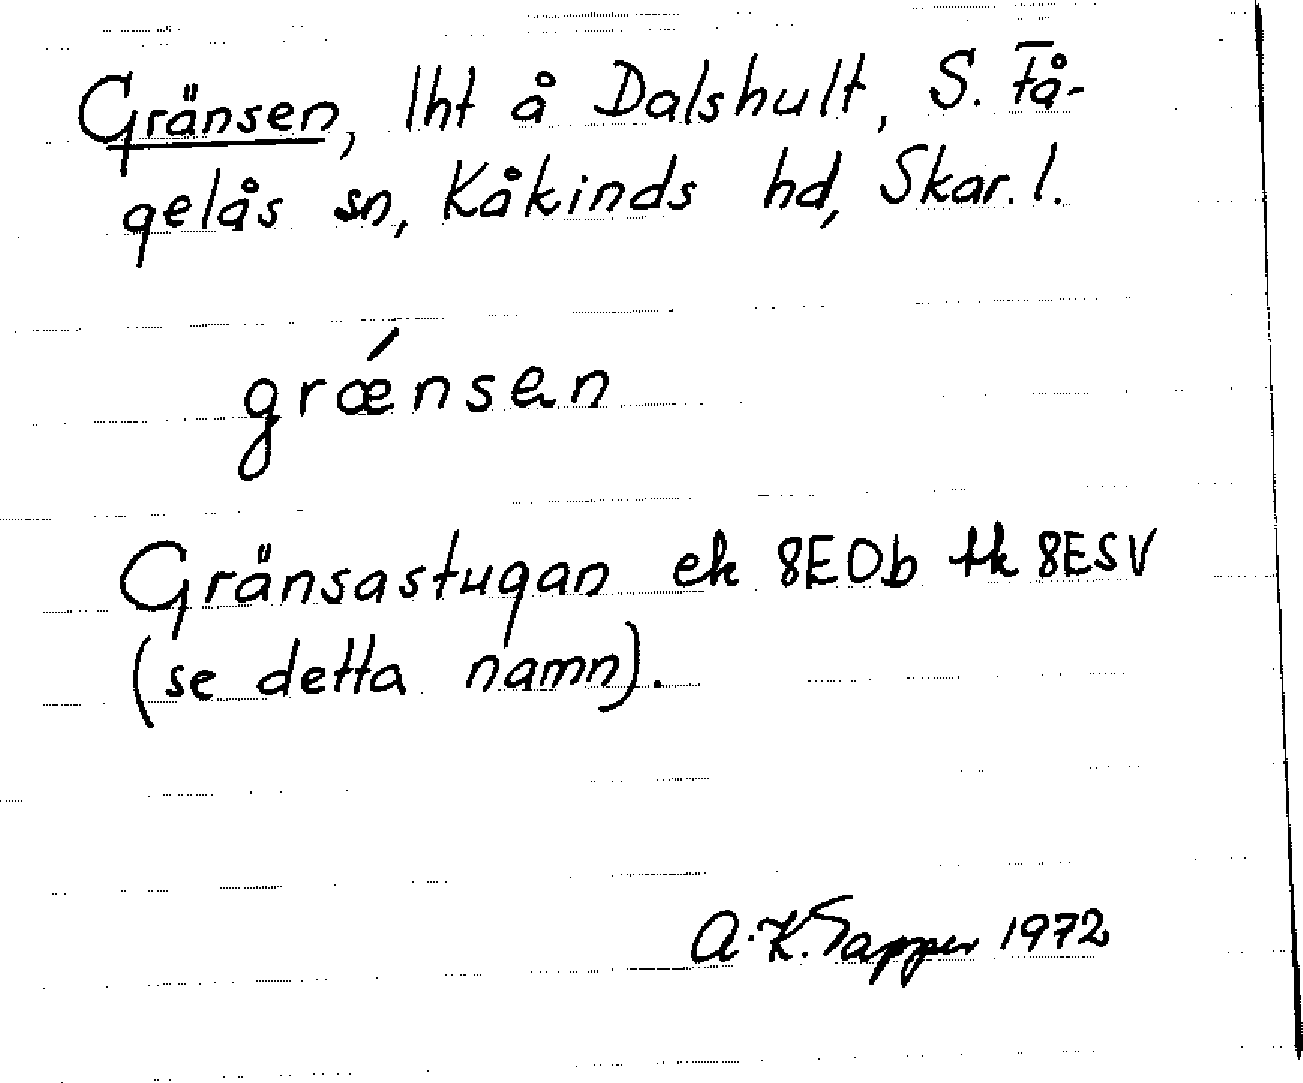 Gränsen, lht å Dalshult, S. Få-
gelås sn, Kåkinds hd, Skar. l.
grǽnsen
Gränsastugan ek 8E0b tk 8ESV
(se detta namn).
A.-K. Sapper 1972